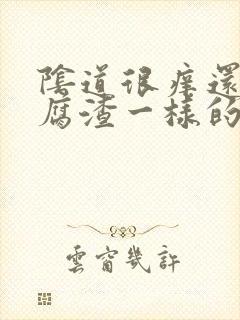 陰道很痒還
腐渣一樣的
雲窗幾許